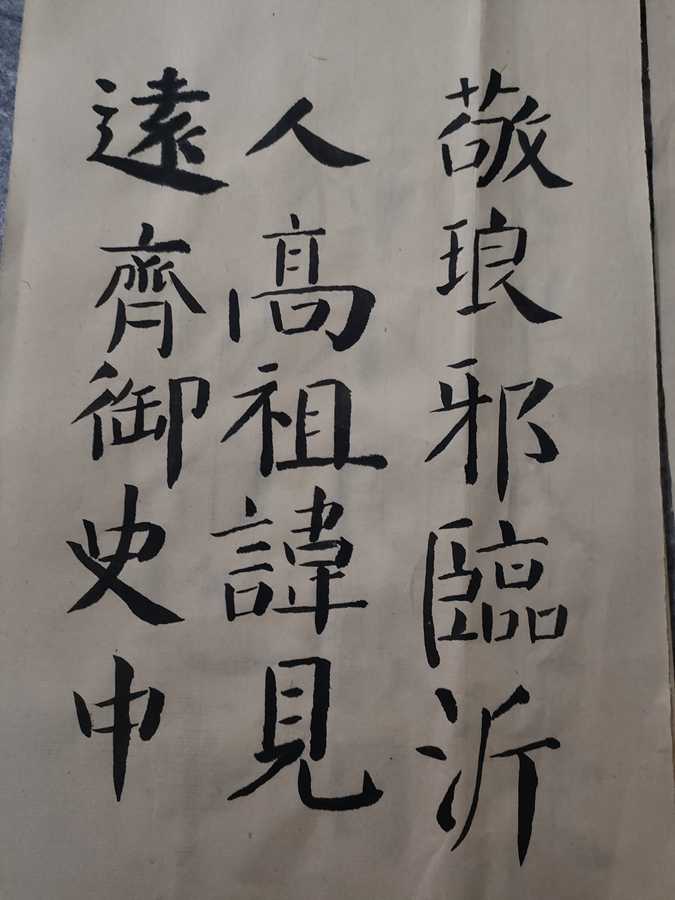 敬琅邪臨沂
人高祖諱見
遠齊御史中